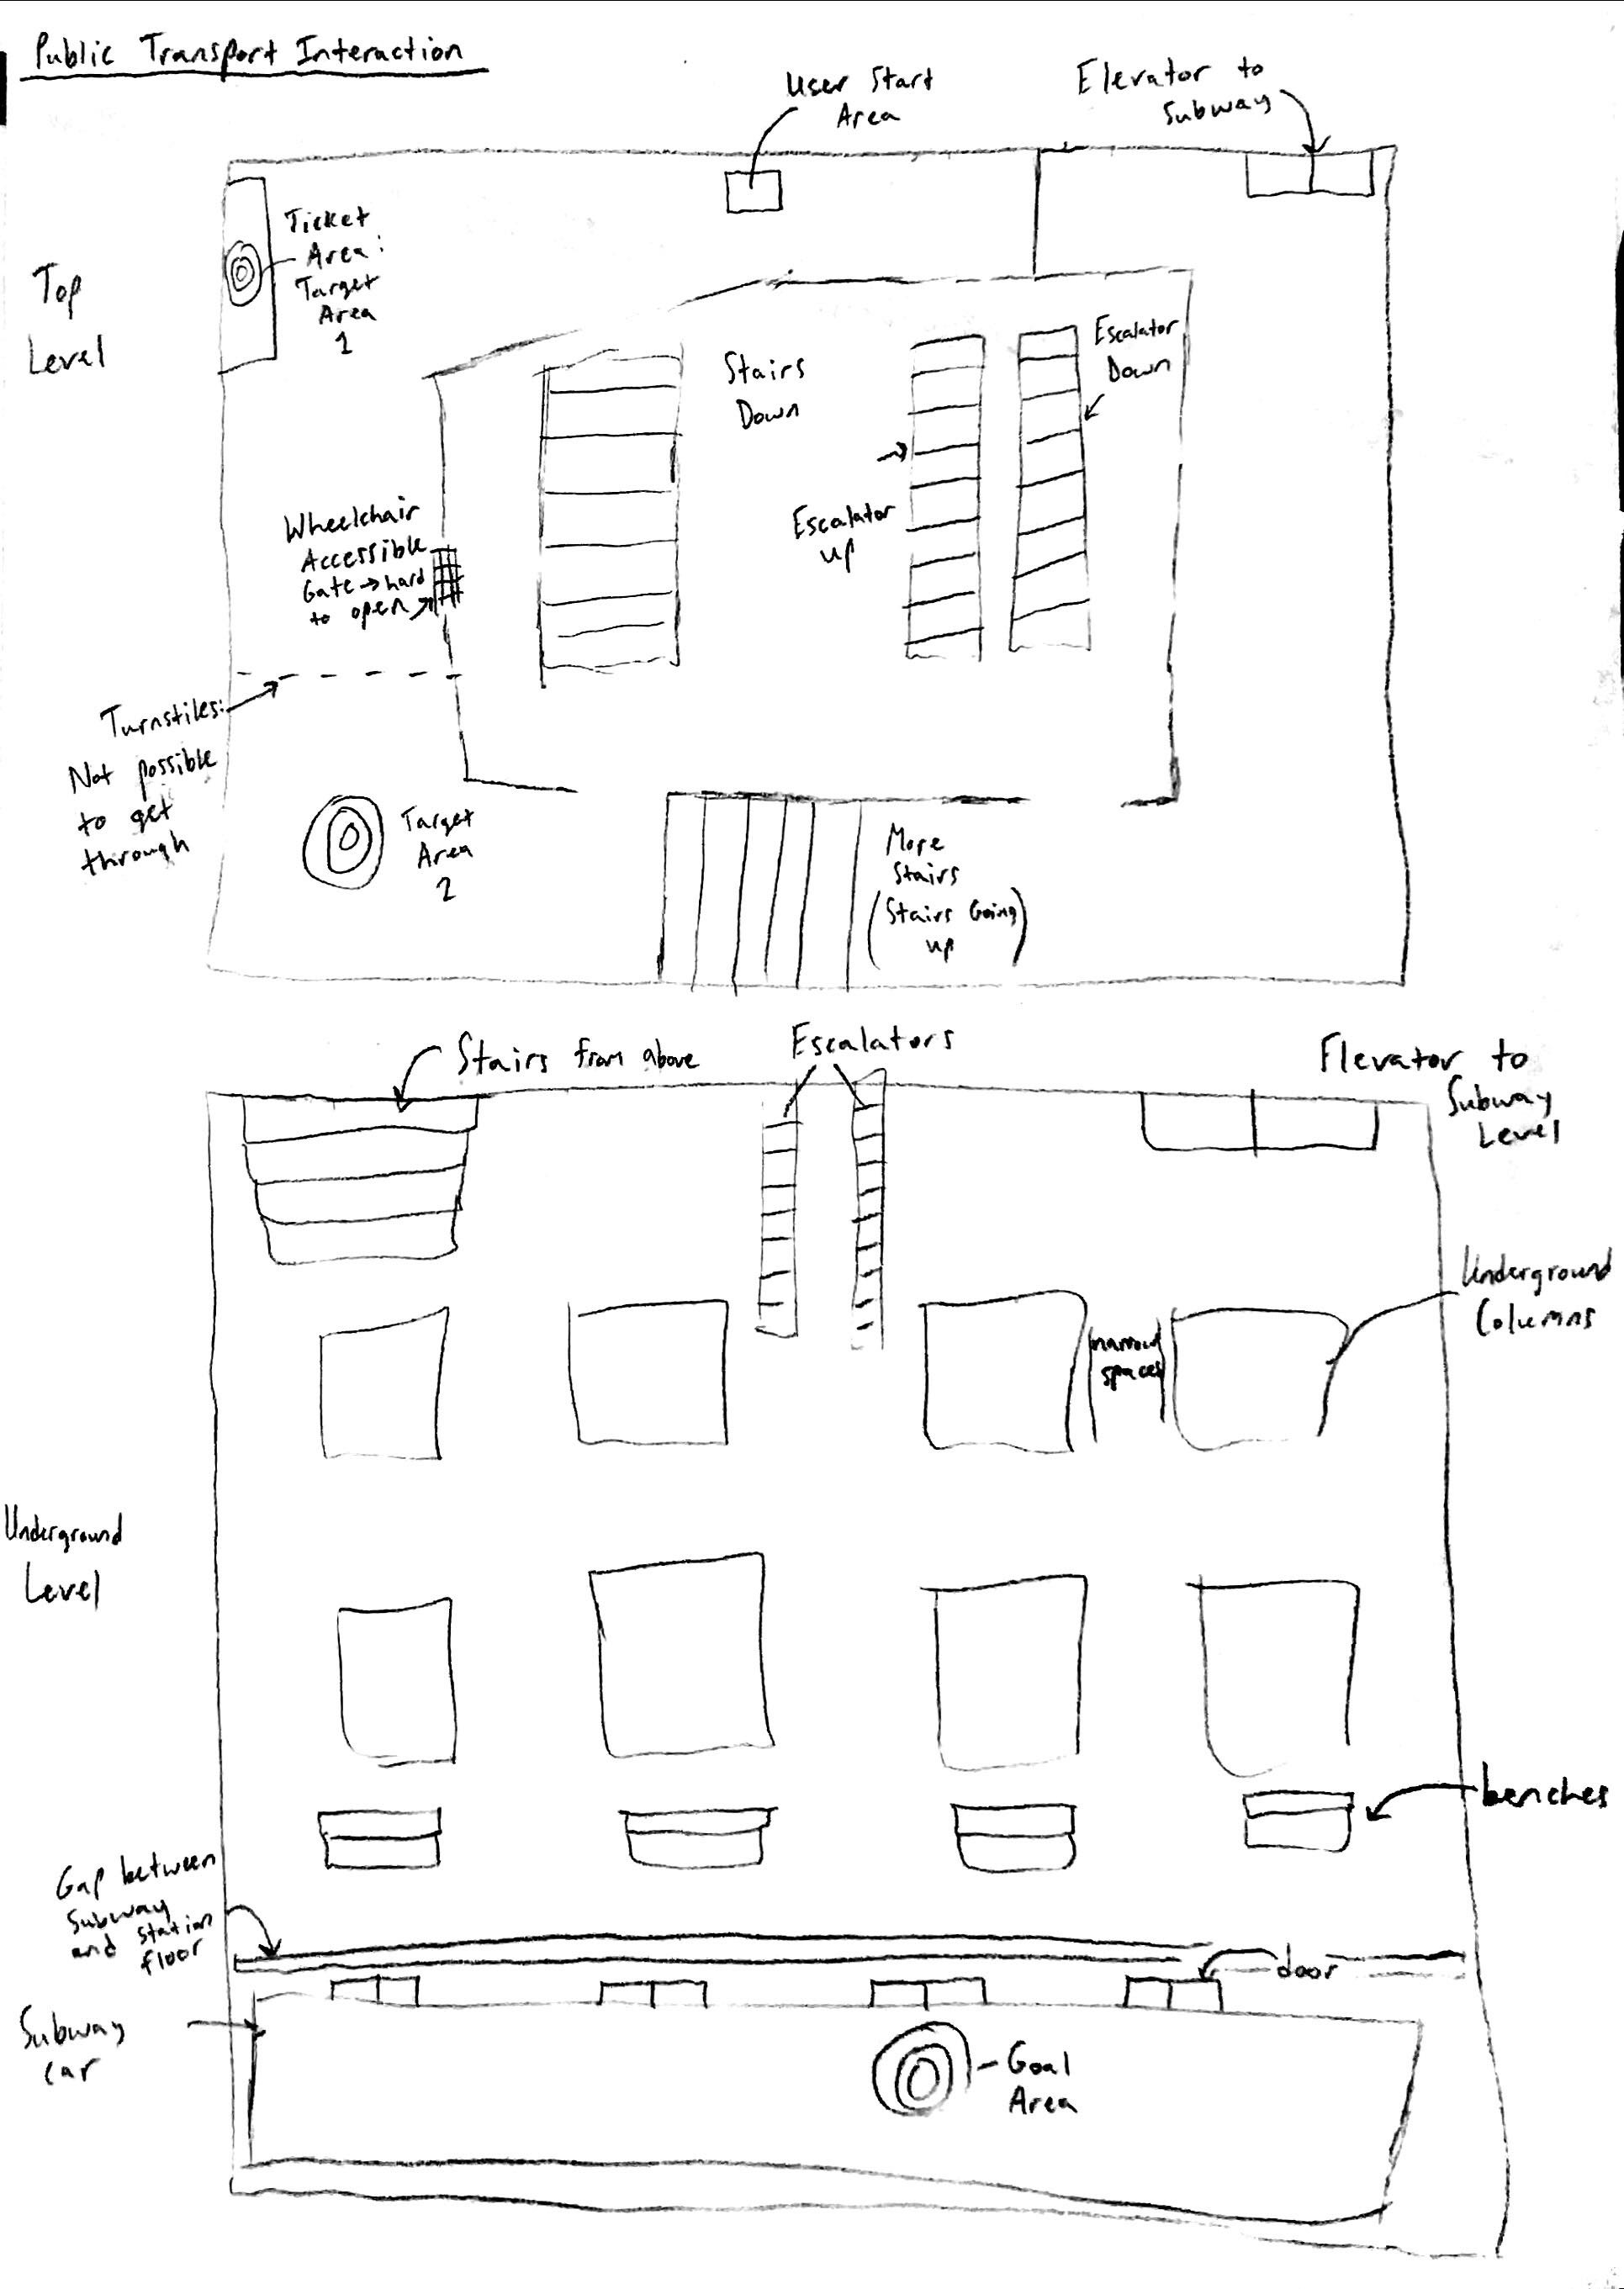 Public Transport Interaction
User Start
Area
Elevator to
Subway
Top
Level
Ticket
Area:
Target
Area
1
Stairs
Down
Escalator
Down
Escalator
up
Wheelchair
Accessible
Gate → hard
to open
Turnstiles:
Not possible
to get
through
Target
Area
2
More
Stairs
(Stairs Going
up)
Stairs from above
Escalators
Elevator to
Subway
Level
Underground
Columns
narrow
spaces
Underground
Level
benches
Gap between
Subway
and station
floor
door
Subway
car
Goal
Area